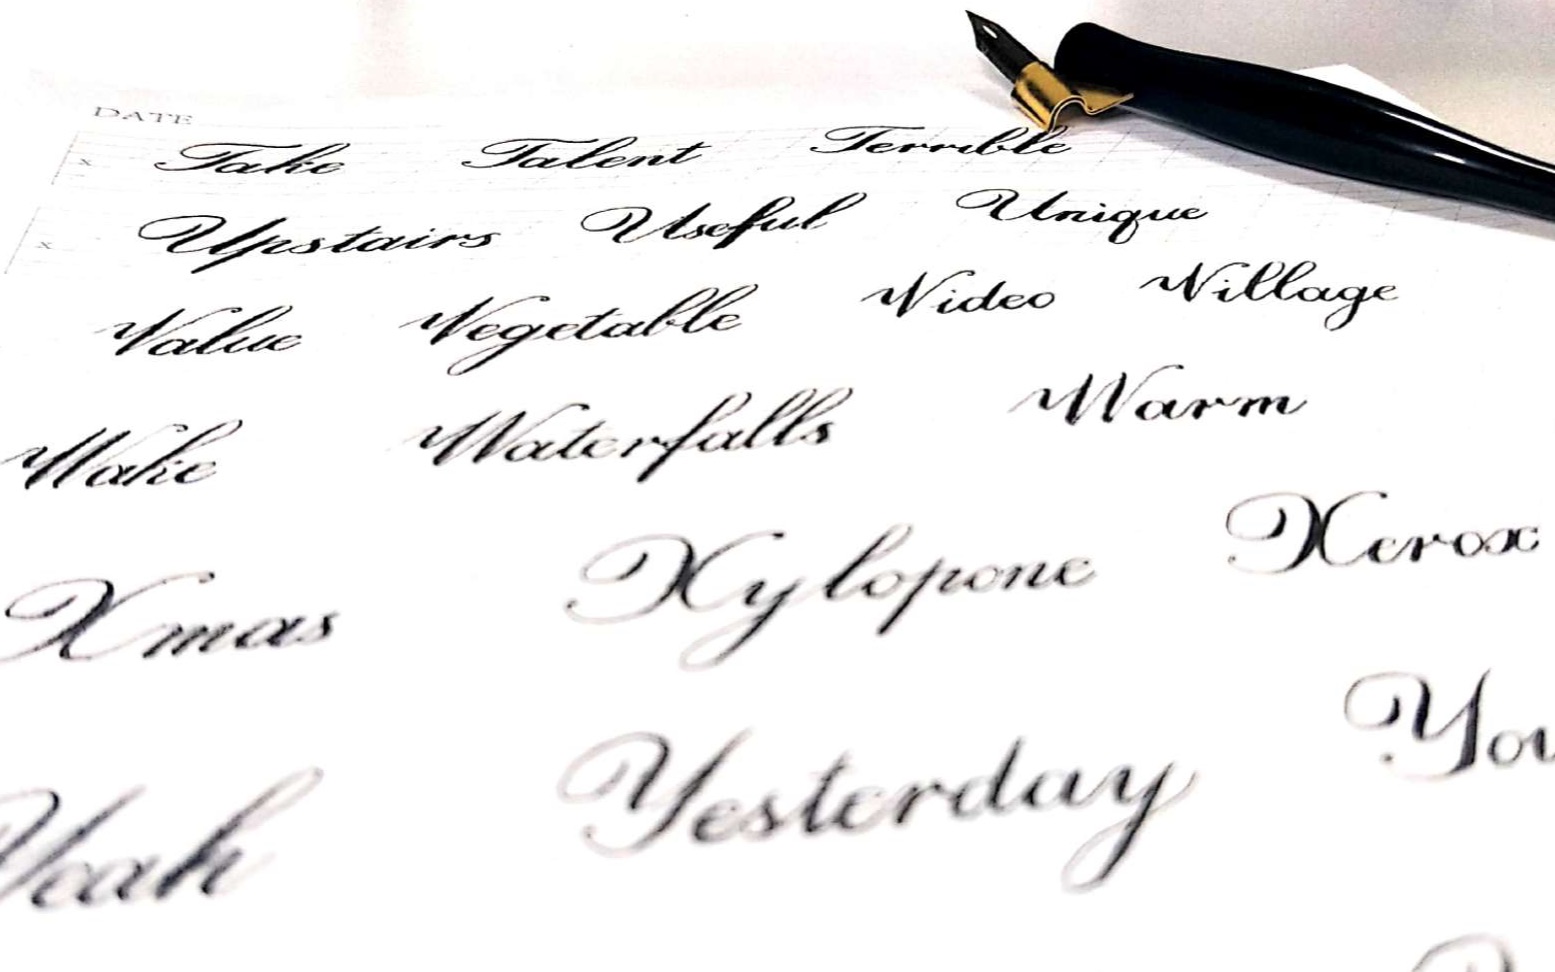 DATE
Take Talent Terrible
Upstairs Useful Unique
Value Vegetable Video Village
Wake Waterfalls Warm
Xmas Xylopone Xerox
Yeah Yesterday You